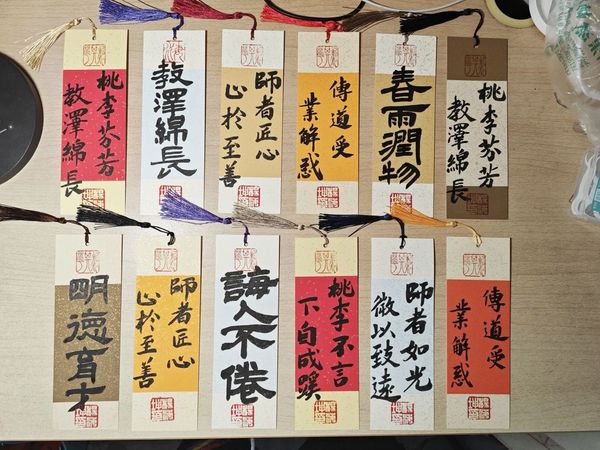 桃李芬芳
教澤綿長
教澤綿長
師者匠心
止於至善
傳道受
業解惑
春雨潤物
桃李芬芳
教澤綿長
明德育才
師者匠心
止於至善
誨人不倦
桃李不言
下自成蹊
師者如光
微以致遠
傳道受
業解惑